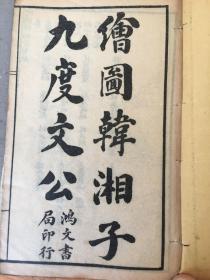 繪圖韓湘子
九度文公
鴻文書
局印行